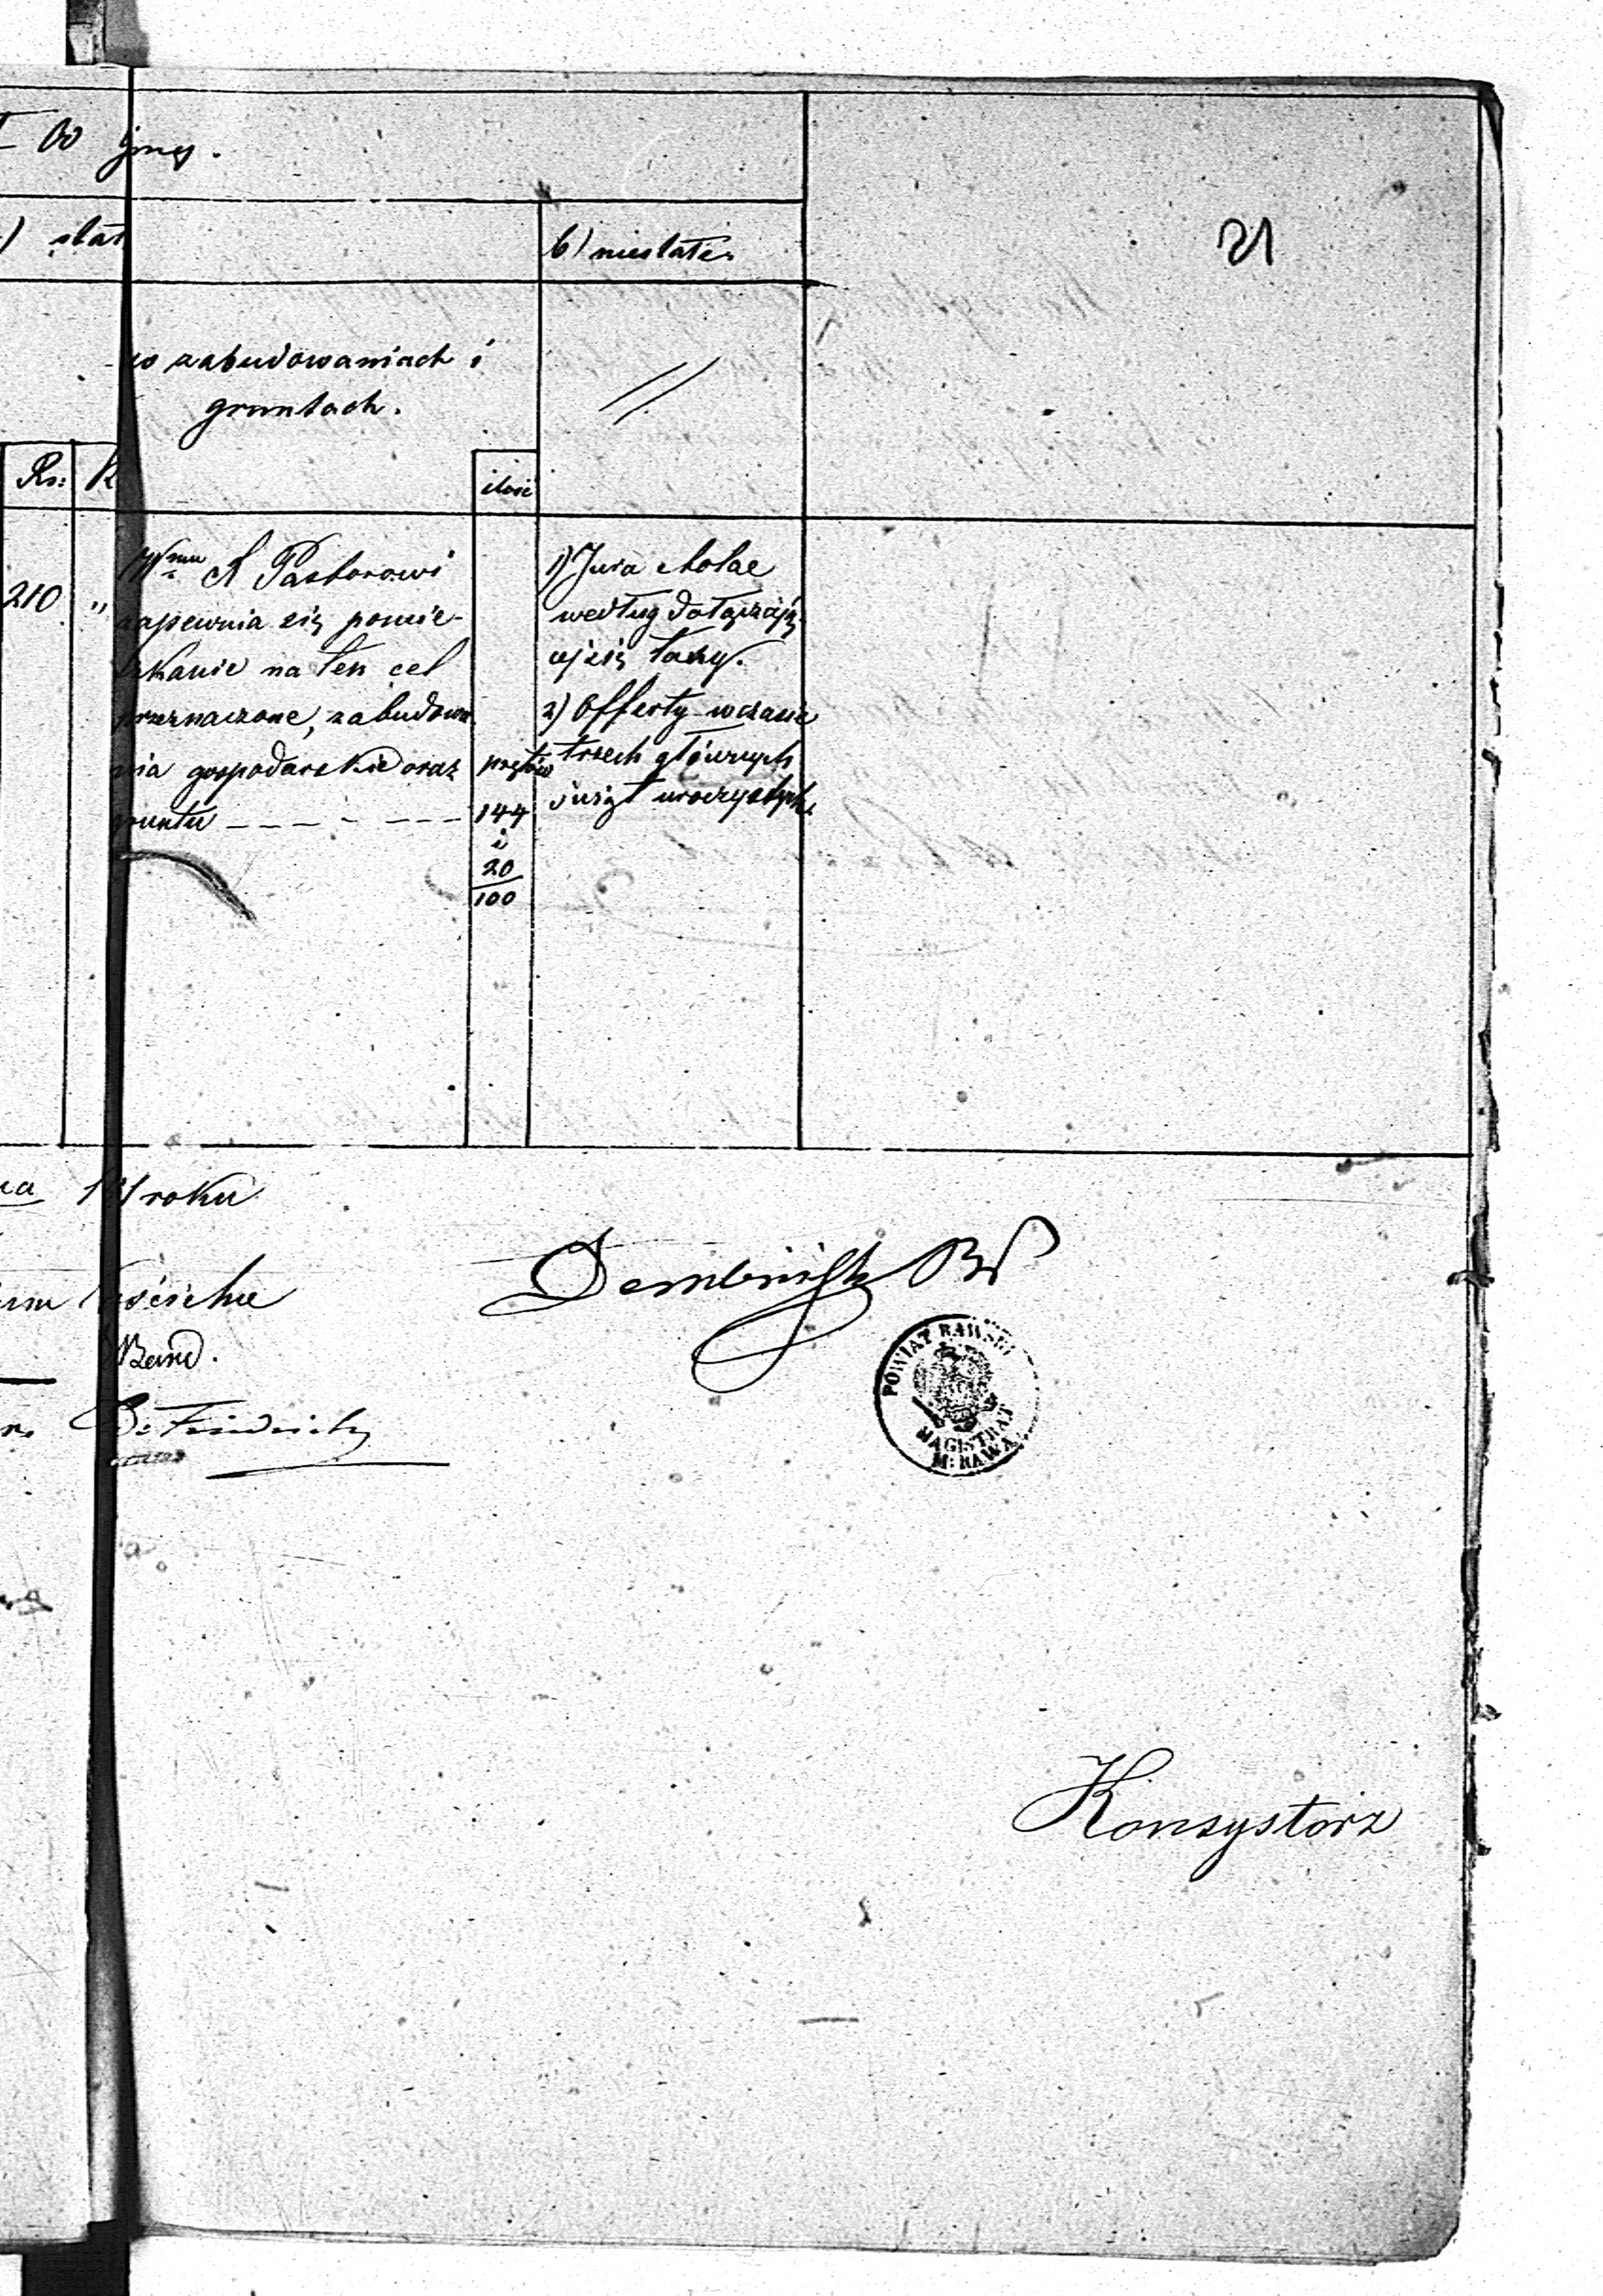 21
b) niestałe
w zabudowaniach i
gruntach.
Rs:
ilość
Wmu Pastorowi
zapewnia się pomie-
szkanie na ten cel
przeznaczone, zabudowa
nia gospodarskie oraz
gruntu
210 "
prętów
144
i
20
100
1) Jura stolae
według dołączają
cej się taxy.
2) Offerty w czasie
trzech głównych
świąt uroczystych
roku
Dembiński
POWIAT RAWSKI
MAGISTRAT
M: RAWA
Konsystorz